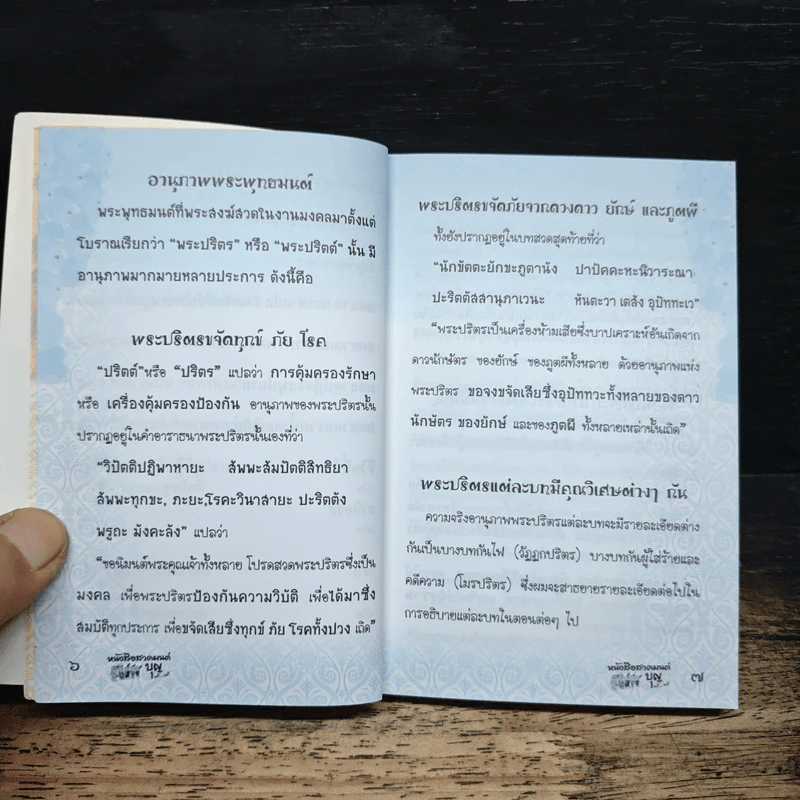 อานุภาพพระพุทธมนต์
พระพุทธมนต์ที่พระสงฆ์สวดในงานมงคลมาตั้งแต่
โบราณเรียกว่า “พระปริตร” หรือ “พระปริตต์” นั้น มี
อานุภาพมากมายหลายประการ ดังนี้คือ
พระปริตรขจัดทุกข์ ภัย โรค
“ปริตต์”หรือ “ปริตร” แปลว่า การคุ้มครองรักษา
หรือ เครื่องคุ้มครองป้องกัน อานุภาพของพระปริตรนั้น
ปรากฏอยู่ในคำอาราธนาพระปริตรนั้นเองที่ว่า
“วิปัตติปฏิพาหายะ สัพพะสัมปัตติสิทธิยา
สัพพะทุกขะ, ภะยะ,โรคะวินาสายะ ปะริตตัง
พรูถะ มังคะลัง” แปลว่า
“ขอนิมนต์พระคุณเจ้าทั้งหลาย โปรดสวดพระปริตรซึ่งเป็น
มงคล เพื่อพระปริตรป้องกันความวิบัติ เพื่อได้มาซึ่ง
สมบัติทุกประการ เพื่อขจัดเสียซึ่งทุกข์ ภัย โรคทั้งปวง เถิด”
๖ หนังสือสวดมนต์
บุญ
พระปริตรขจัดภัยจากดวงดาว ยักษ์ และภูตผี
ทั้งยังปรากฏอยู่ในบทสวดสุดท้ายที่ว่า
“นักขัตตะยักขะภูตานัง ปาปัคคะหะนิวาระณา
ปะริตตัสสานุภาเวนะ หันตะวา เตสัง อุปัททะเว”
“พระปริตรเป็นเครื่องห้ามเสียซึ่งบาปเคราะห์อันเกิดจาก
ดาวนักษัตร ของยักษ์ ของภูตผีทั้งหลาย ด้วยอานุภาพแห่ง
พระปริตร ขอจงขจัดเสียซึ่งอุปัททวะทั้งหลายของดาว
นักษัตร ของยักษ์ และของภูตผี ทั้งหลายเหล่านั้นเถิด”
พระปริตรแต่ละบทมีคุณวิเศษต่างๆ กัน
ความจริงอานุภาพพระปริตรแต่ละบทจะมีรายละเอียดต่าง
กันเป็นบางบทกันไฟ (วัฏฏกปริตร) บางบทกันผู้ใส่ร้ายและ
คดีความ (โมรปริตร) ซึ่งผมจะสาธยายรายละเอียดต่อไปใน
การอธิบายแต่ละบทในตอนต่อๆ ไป
หนังสือสวดมนต์
บุญ ๗